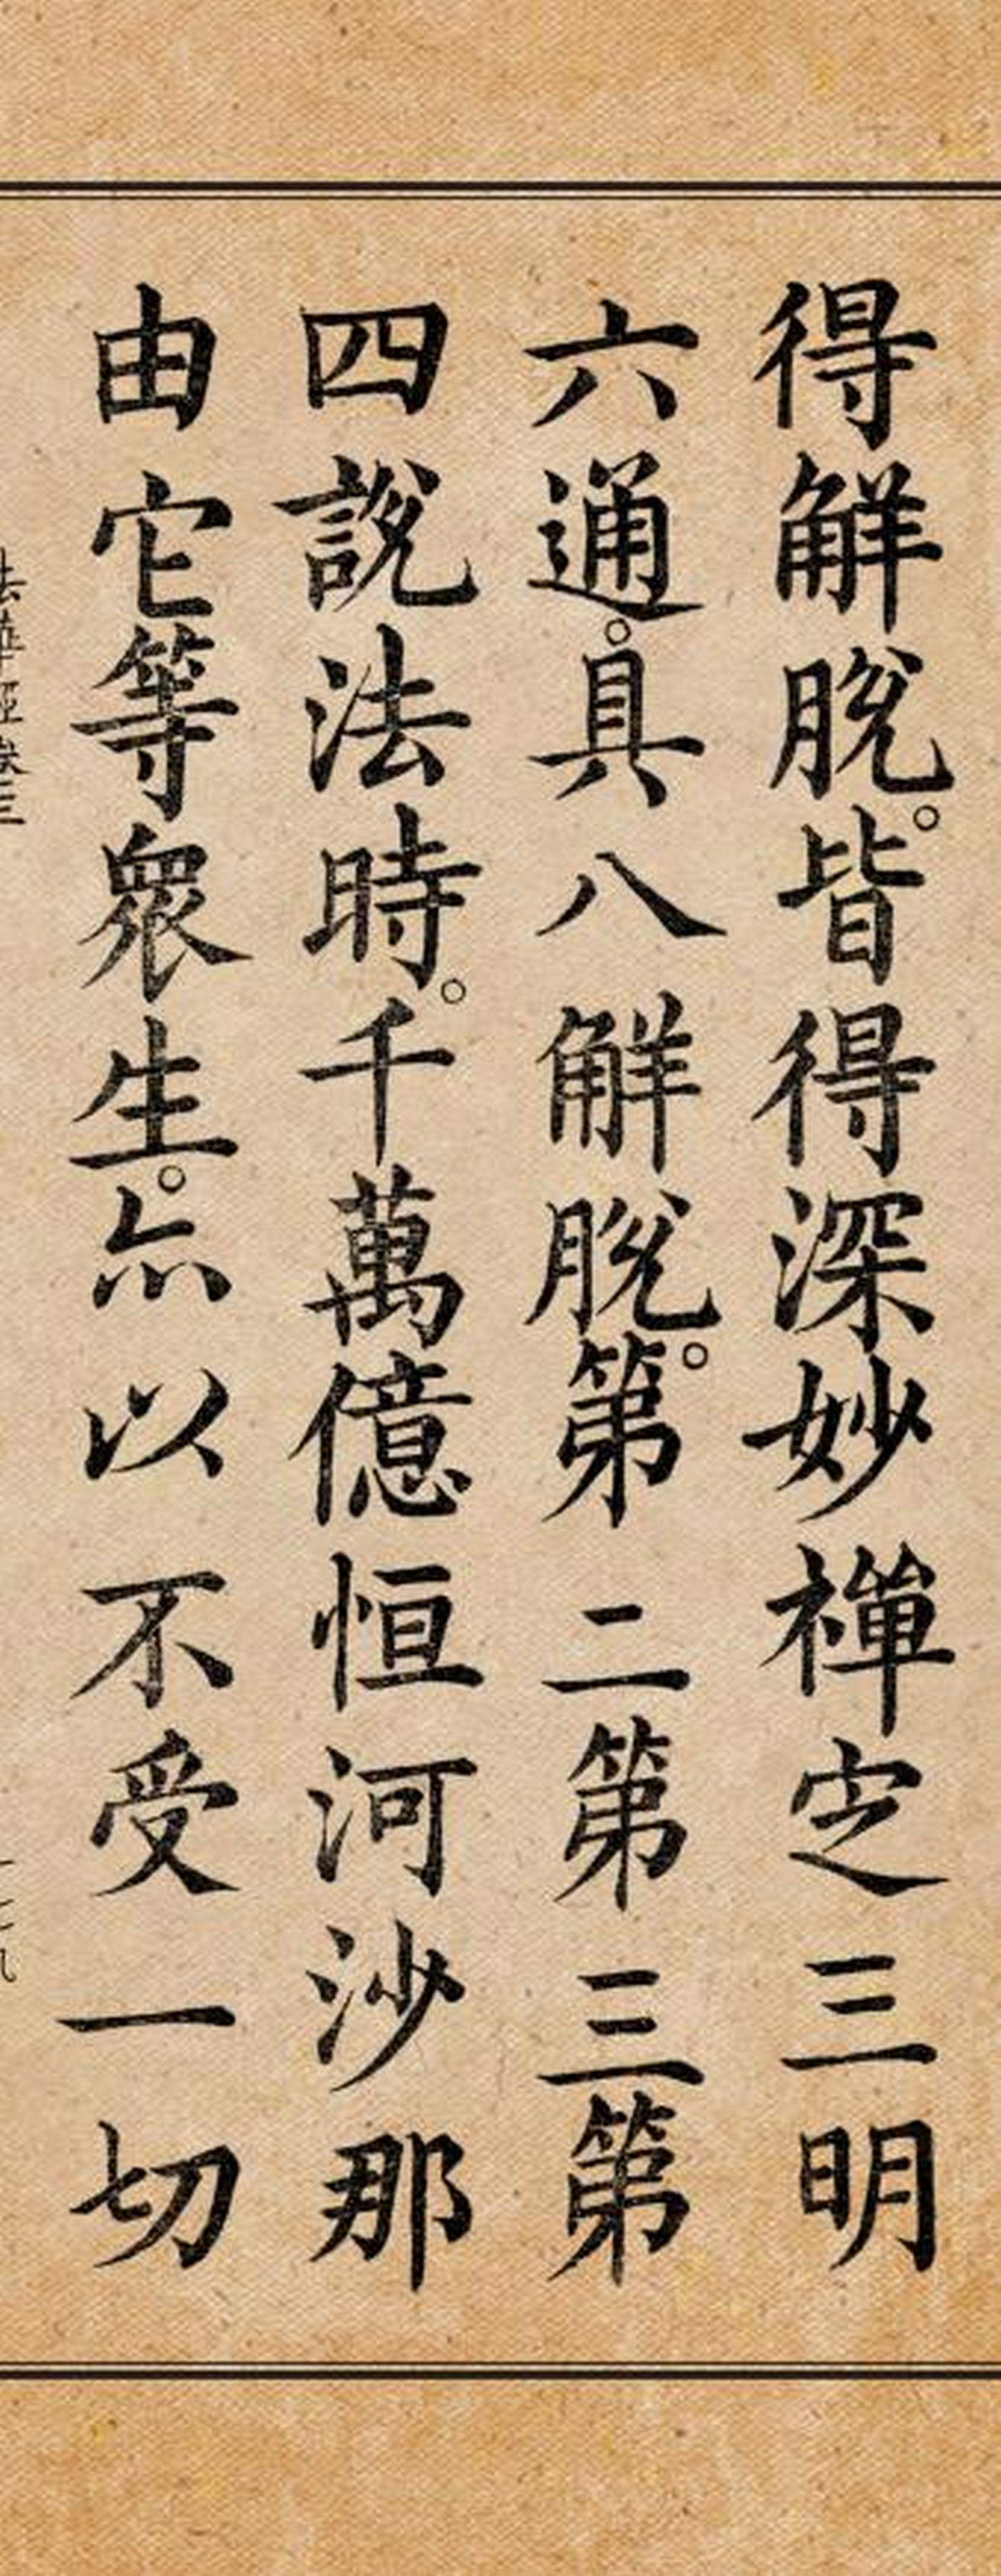 得解脫。皆得深妙禪定三明
六通。具八解脫。第二第三第
四說法時。千萬億恒河沙那
由它等眾生。亦以不受一切
法華經卷三